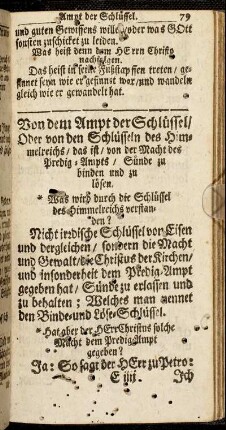 Ampt der Schlüssel. 79
und guten Gewissens wille/ oder was GOtt
sonsten zuschicket zu leiden.
Was heist denn dem HErrn Christo
nachfolgen.
Das heist in seine Fußstapffen treten/ ge-
sinnet seyn wie er gesinnet war/ und wandeln
gleich wie er gewandelt hat.
Von dem Ampt der Schlüssel/
Oder von den Schlüsseln des Him-
melreichs/ das ist/ von der Macht des
Predig-Ampts/ Sünde zu
binden und zu
lösen.
* Was wird durch die Schlüssel
des Himmelreichs verstan-
den?
Nicht irdische Schlüssel von Eisen
und dergleichen/ sondern die Macht
und Gewalt/ die Christus der Kirchen/
und insonderheit dem Predig-Ampt
gegeben hat/ Sünde zu erlassen und
zu behalten; Welches man nennet
den Binde- und Löse-Schlüssel.
* Hat aber der HErr Christus solche
Macht dem Predig Ampt
gegeben?
Ja: So sagt der HErr zu Petro:
E iiij Ich